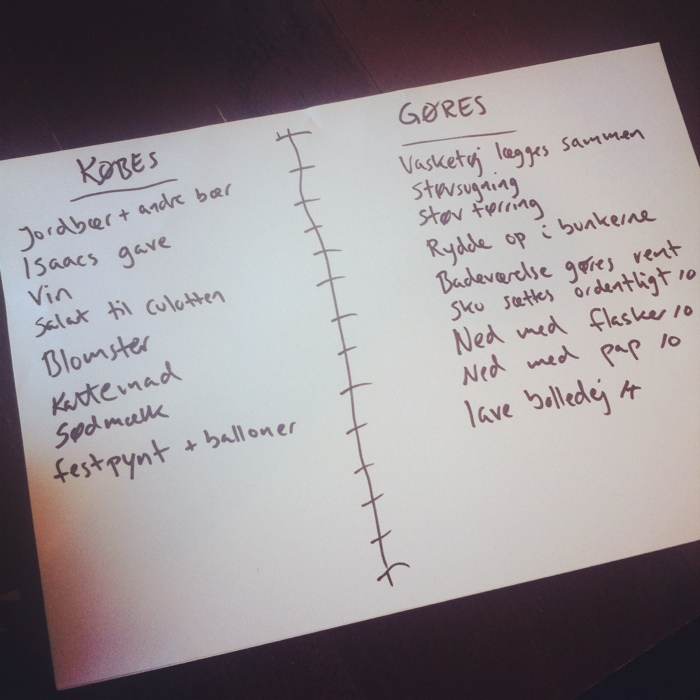 KØBES
Jordbær + andre bær
Isaacs gave
Vin
Salat til culotten
Blomster
Kattemad
Sødmælk
festpynt + balloner
GØRES
Vasketøj lægges sammen
Støvsugning
Støv tørring
Rydde op i bunkerne
Badeværelse gøres rent
Sko sættes ordentligt 10
Ned med flasker 10
Ned med pap 10
lave bolledej